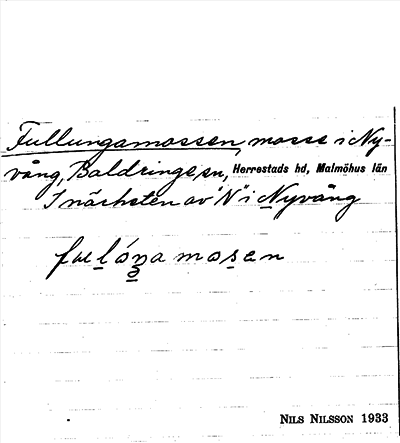 Fullungamossen, mosse i Ny-
vång, Baldringe sn, Herrestads hd, Malmöhus län
I närheten av "N" i Nyvång
fuulóŋamosen
NILS NILSSON 1933